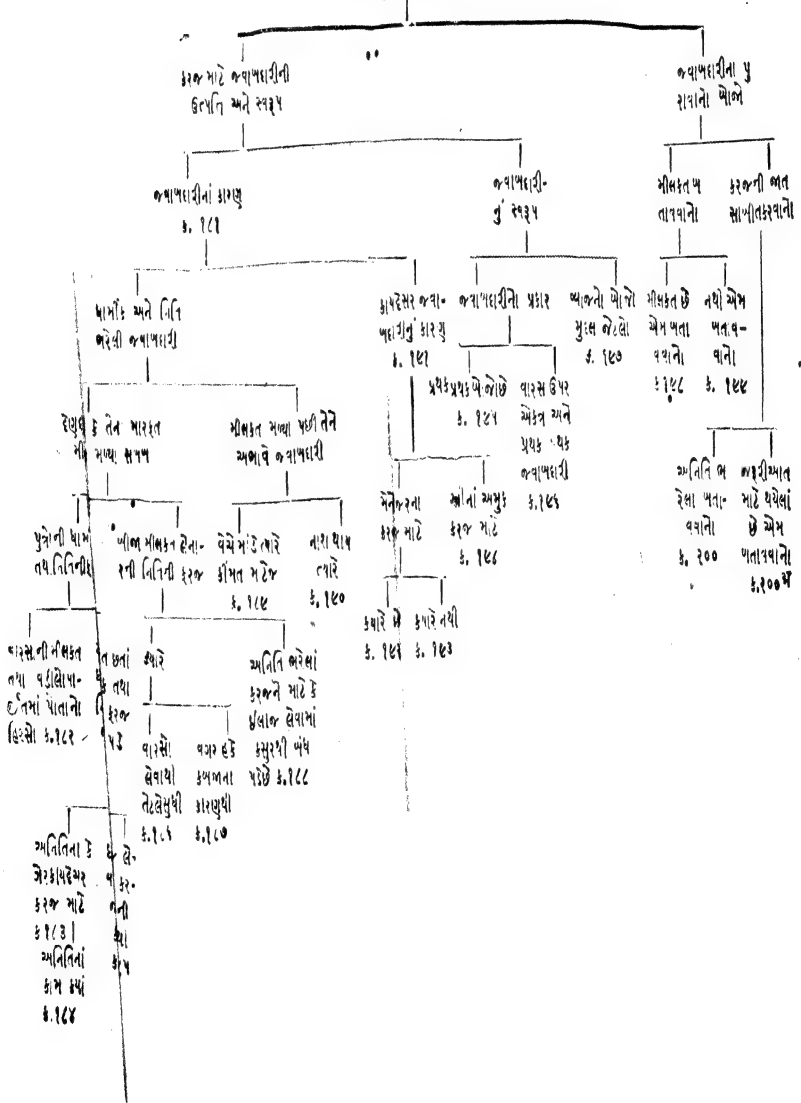 કરજ માટે જવાબદારીની
ઉત્પતિ અને સ્વરૂપ
જવાબદારીના પુ
રાવાનો બોજો
જવાબદારીનાં કારણ
ક. ૧૮૧
જવાબદારી-
નું સ્વરૂપ
મીલકત બ
તાવવાનો
કરજની જાત
સાબીતકરવાનો
ધાર્મીક અને નિતિ
ભરેલી જવાબદારી
કાયદેસર જવા-
બદારીનું કારણ
ક. ૧૯૧
જવાબદારીનો પ્રકાર
વ્યાજનો બોજો
મુદલ જેટલો
ક. ૧૯૭
મીલકત છે
એમ બતા
વવાનો
ક ૧૯૮
નથી એમ
બતાવ-
વાનો
ક. ૧૯૯
પ્રથક પ્રથક બોજો છે
ક. ૧૯૫
વારસ ઉપર
એકત્ર અને
પ્રથક
જવાબદારી
ક.૧૯૬
કે તેન મારફત
મળ્યા
મીલકત મળ્યા પછી તેને
અભાવે જવાબદારી
મેનેજરના
કરજ માટે
સ્ત્રીનાં અમુક
કરજ માટે
ક. ૧૯૪
અનિતિ ભ
રેલા બતા-
વવાનો
ક. ૨૦૦
જરૂરીઆત
માટે થયેલાં
છે એમ
બતાવવાનો
ક.૨૦૦અ
પુત્રોની ધામ
બીજા મીલકત લેના-
રની નિતિની ફરજ
વેચે માંડે ત્યારે
કીંમત મટેજ
ક. ૧૮૯
નારા થાય
ત્યારે
ક. ૧૯૦
કયારે છે
કયારે નથી
ક. ૧૯૩
વારસાની મીલકત
તથા વડીલોપા-
ર્જીતમાં પોતાનો
હિસ્સો ક.૧૮૨
છતાં
તથા
ફરજ
પડે
ક્યારે
અનિતિ ભરેલાં
કરજને માટે કે
ઈલાજ લેવામાં
કસુરથી બંધ
પડેછે ક.૧૮૮
વારસો
લેવાથી
તેટલેસુધી
ક.૧૮૬
વગર હકે
કબજાના
કારણથી
ક.૧૮૭
અનિતિના કે
ગેરકાયદેસર
કરજ માટે
ક ૧૮૩
અનિતિનાં
કામ કયાં
ક.૧૮૪